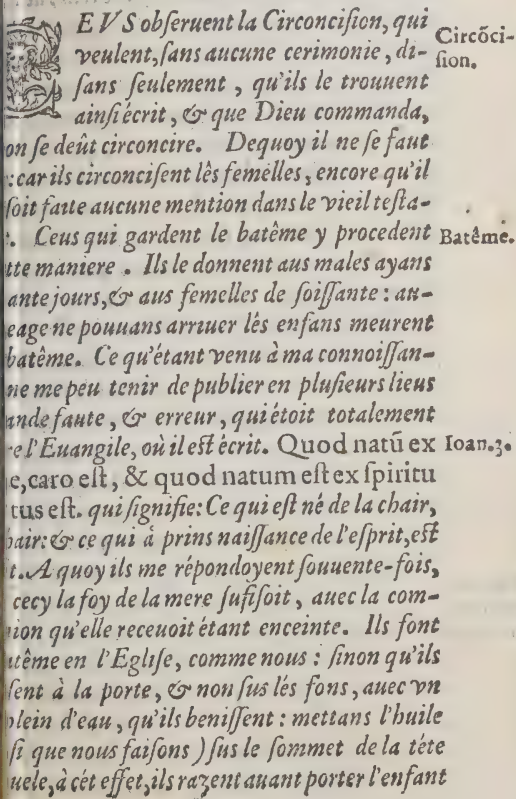 CEUS obſeruent la Circonciſion, qui
Circõci-
ſion.
veulent, ſans aucune cerimonie, di-
ſans ſeulement, qu'ils le trouuent
ainſi écrit, & que Dieu commanda,
on ſe deût circoncire. Dequoy il ne ſe faut
: car ils circonciſent lês femelles, encore qu'il
ſoit faite aucune mention dans le vieil teſta-
. Ceus qui gardent le batême y procedent
Batême.
tte maniere. Ils le donnent aus males ayans
ante jours, & aus femelles de ſoiſſante: au-
eage ne pouuans arriuer lés enfans meurent
batême. Ce qu'étant venu à ma connoiſſan-
ne me peu tenir de publier en pluſieurs lieus
ande faute, & erreur, qui étoit totalement
re l'Euangile, où il eſt écrit. Quod natũ ex
Ioan.3.
e, caro eſt, & quod natum eſt ex ſpiritu
tus eſt. qui ſignifie: Ce qui eſt né de la chair,
hair: & ce qui à prins naiſſance de l'eſprit, eſt
t. A quoy ils me répondoyent ſouuente-fois,
cecy la foy de la mere ſufiſoit, auec la com-
ion qu'elle receuoit étant enceinte. Ils font
tême en l'Egliſe, comme nous: ſinon qu'ils
ſent à la porte, & non ſus lés fons, auec vn
plein d'eau, qu'ils beniſſent: mettans l'huile
ſi que nous faiſons) ſus le ſommet de la téte
uele, à cét effet, ils razent auant porter l'enfant